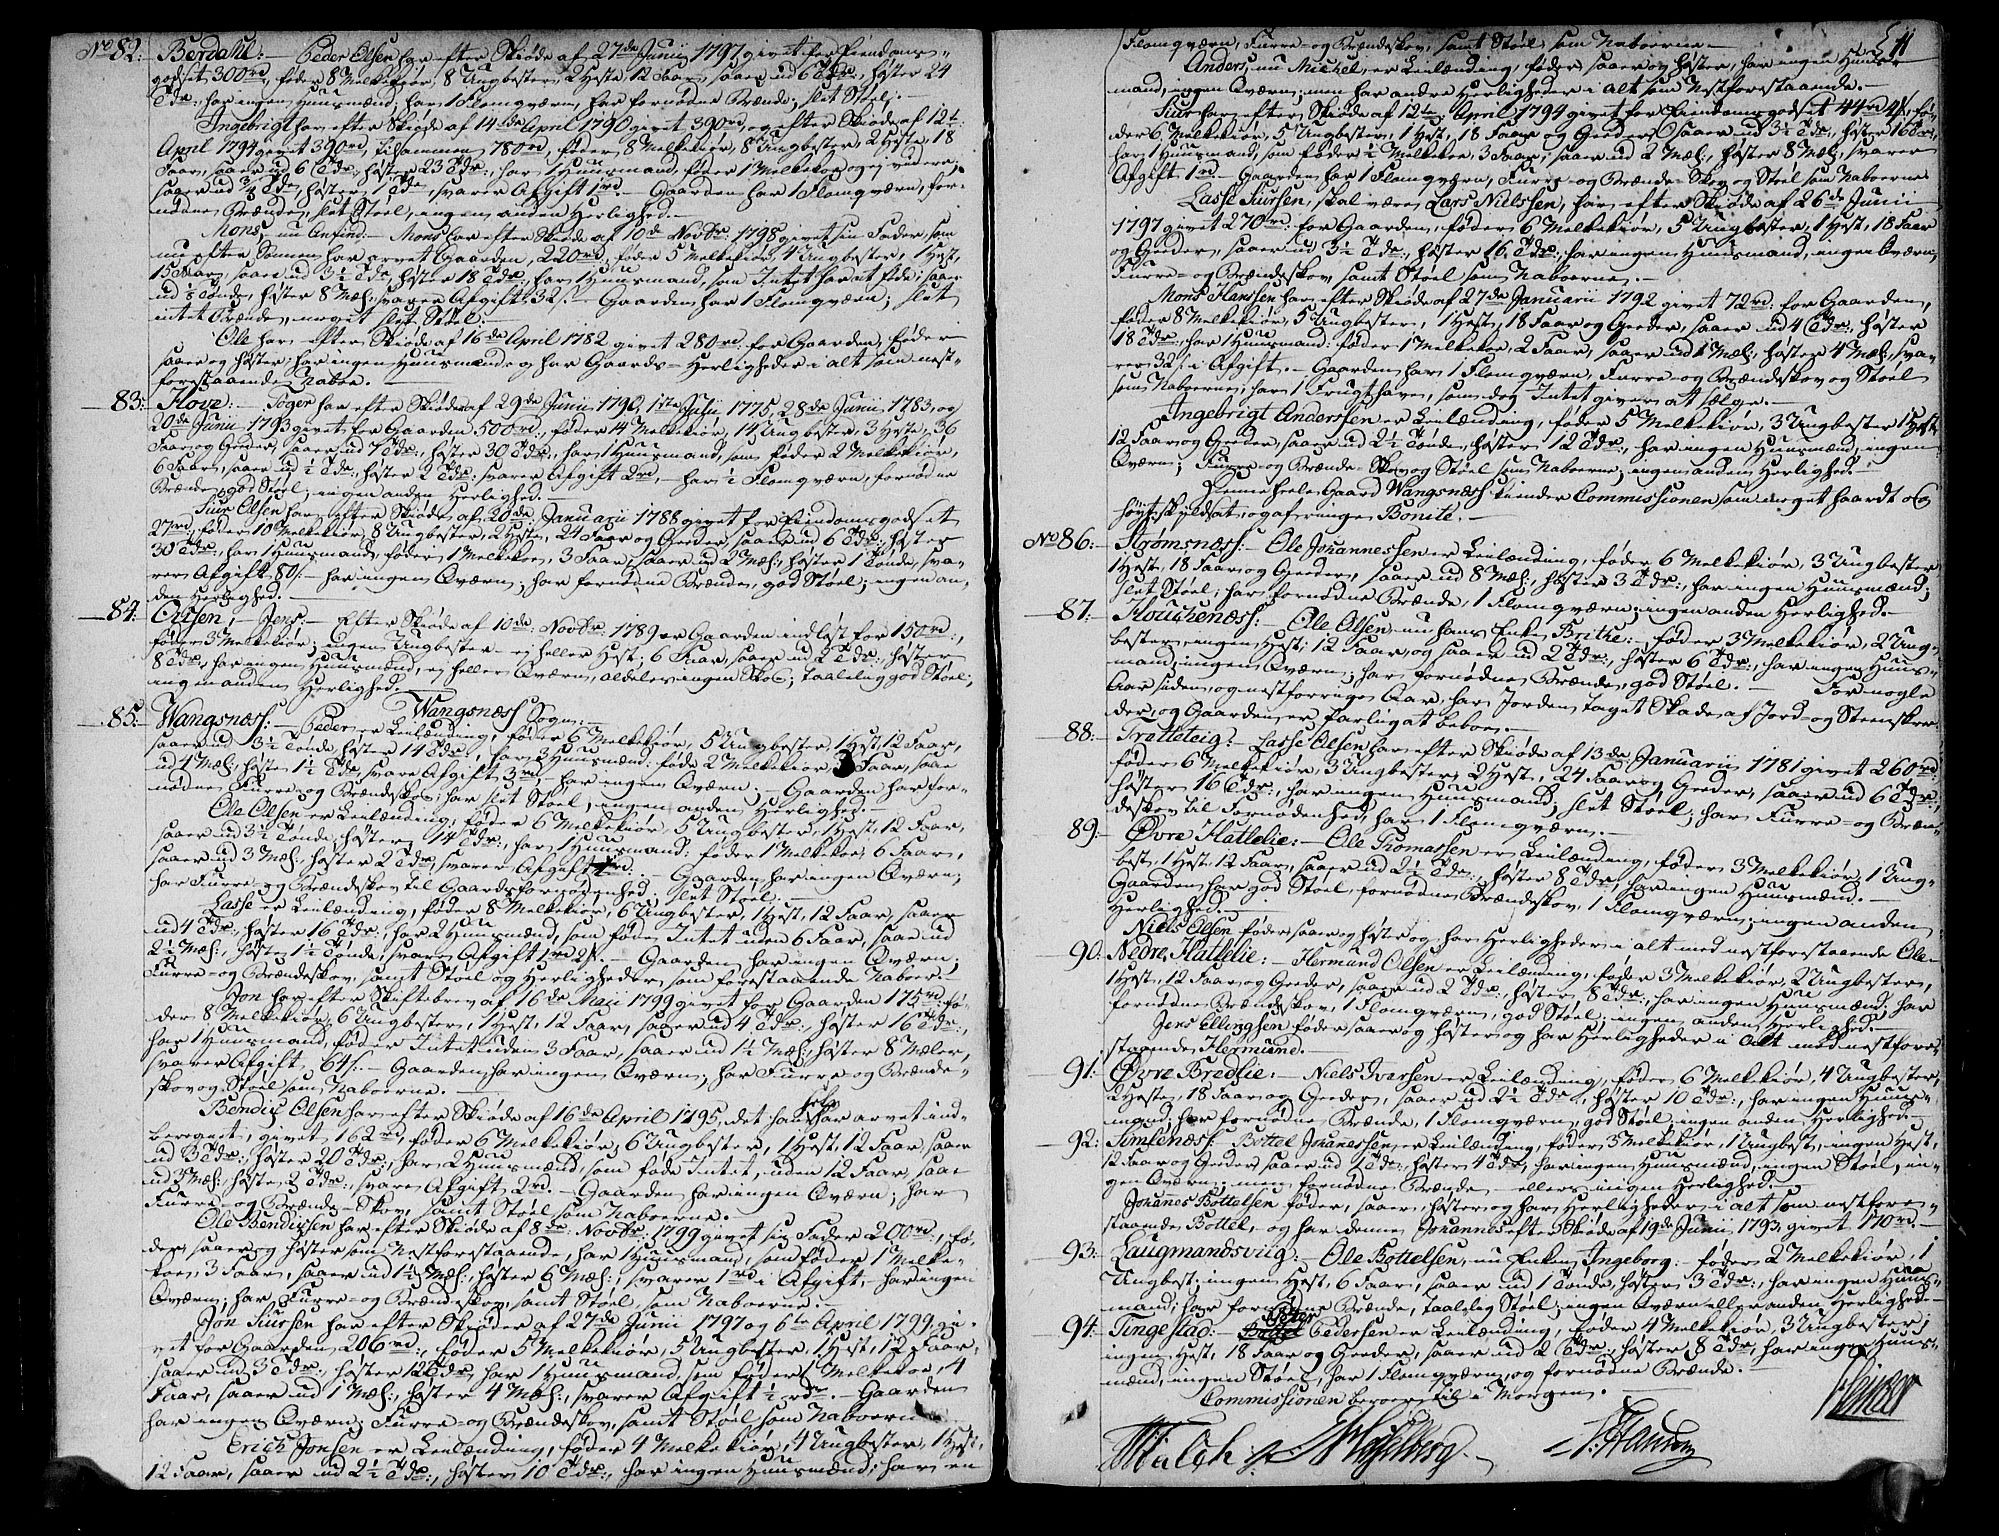 No 82. Berdahl: – Peder Olsen har efter Skiøde af 27de Junii 1797 givet for Eiendoms-
godset 300rd, føder 8 Melkekiør, 8 Ungbester, 2 Heste 12 Faar, saaer ud 6 Tdr, høster 24
Tdr:, har ingen Huusmænd; har 1 Flomqværn, har fornødne Brænde, slet Støel. –
Ingebrigt har efter Skiøde af 14de April 1790 givet 390rd, og efter Skiøde af 12te
April 1794 givet 390rd, tilsammen 780rd, føder 8 Melkekiør, 8 Ungbester, 2 Heste, 18
Faar, saaer ud 6 Tdr:, høster 23 Tdr:, har 1 Huusmand, føder 1 Melkekoe og ej videre,
saaer ud Tde, høster 1 Tde, svarer Afgift 1rd. – Gaarden har 1 Flomqværn, for-
nødne Brænde, slet Støel, ingen anden Herlighed. –
Mons, nu Anfind: – Mons har efter Skiøde af 10de Novbr: 1798 givet sin Fader, som
nu efter Sønnen har arvet Gaarden, 220rd, føder 5 Melkekiør, 4 Ungbester, 1 Hest,
15 Faar, saaer ud 3½ Tde, høster 18 Tdr:, har 1 Huusmand, som Intet har at føde; saaer
ud ½ Tønde, høster 8 Mæl:, svarer Afgift 32ſ. – Gaarden har 1 Flomqværn; slet
intet Brænde, meget slet Støel. –
Ole har efter Skiøde af 16de April 1782 givet 280rd for Gaarden, føder
saaer og høster, har ingen Huusmænd og har Gaards-Herligheder i alt som nest-
forestaaende Naboe. –
83: Hove: – Søger har efter Skiøde af 29de Junii 1790, 1ste Julii 1775, 28de Junii 1783, og
20de Junii 1793 givet for Gaarden 500rd:, føder 14 Melkekiør, 14 Ungbester, 3 Heste, 36
Faar og Geeder, saaer ud 7 Tdr, høster 30 Tdr:, har 1 Huusmand, som føder 2 Melkekiør,
6 Faar, saaer ud ½ Tde:, høster 2 Tdr: svarer Afgift 2rd, – har 1 Flomqværn, fornødne
Brænde, god Støel, ingen anden Herlighed. –
Siur Olsen har efter Skiøde af 20de Januarii 1788 givet for Eiendomsgodset
27rd, føder 10 Melkekiør, 8 Ungbester, 2 Heste, 24 Faar og Geeder, saaer ud 6 Tdr:, høster
30 Tdr:, har 1 Huusmand, føder 1 Melkekoe, 3 Faar, saaer ud 2 Mæl:, høster 1 Tønde, sva-
rer Afgift 80ſ. – har ingen Qværn; har fornødne Brænde, god Støel; ingen an-
den Herlighed. –
84. Jens, – Efter Skiøde af 10de: Novbr 1789 er Gaarden indløst for 150rd:,
føder 3 Melkekiør, ingen Ungbester – ej heller Hest; 6 Faar, saaer ud 2 Tdr:, høster
8 Tdr:, har ingen Huusmænd, ej heller Qværn, aldeles ingen Skov; taalelig god Støel;
ingen anden Herlighed. –
Wangsnæss Sogn: –
85: Wangsnæss: – Peder er Leilænding, føder 6 Melkekiør, 5 Ungbester, 1 Hest, 12 Faar,
saaer ud 3½ Tønde, høster 14 Tdr:, har 2 Huusmænd: føde 2 Melkekiør 3 Faar, saae
ud 4 Mæl:, høster 1½ Tde, svare Afgift 3rd – har ingen Qværn. – Gaarden har for-
nødne Furre- og Brændeskov; har slet Støel; ingen anden Herlighed. –
Ole Olsen er Leilænding, føder 6 Melkekiør, 5 Ungbester, 1 Hest, 12 Faar,
saaer ud 3½ Tønde, høster 14 Tdr:, har 1 Huusmand: føder 1 Melkekoe, 6 Faar,
saaer ud 3 Mæl:, høster 2 Tdr, svarer Afgift rd. – Gaarden har ingen Qværn;
har Furre- og Brændeskov til Gaardsfornødenhed; slet Støel. –
Lasse er Leilænding, føder 8 Melkekiør, 6 Ungbester, 1 Hest, 12 Faar, saaer
ud 4 Tdr:, høster 16 Tdr:, har 2 Huusmænd, som føde Intet uden 6 Faar, saae ud
2½ Mæl:, høster 1½ Tønde, svare Afgift 1rd 2ſ. – Gaarden har ingen Qværn;
Furre- og Brændeskov, samt Støel og Herligheder, som forestaaende Naboer. –
Jon har efter Skiftebrev af 16de Maii 1799 givet for Gaarden 175rd: fø-
der 8 Melkekiør, 6 Ungbester, 1 Hest, 12 Faar, saaer ud 4 Tdr:, høster 16 Tdr:,
har 1 Huusmand, føder Intet uden 3 Faar, saaer ud 1½ Mæl:, høster 8 Mæler,
svarer Afgift 64ſ. – Gaarden har ingen Qværn; har Furre- og Brænde-
skov og Støel som Naboerne. –
Bendix Olsen har efter Skiøde af 16de April 1795, det han selv har arvet ind-
beregnet, givet 162rd, føder 6 Melkekiør, 6 Ungbester, 1 Hest, 12 Faar, saaer
ud 3 Tdr:, høster 20 Tdr:, har 2 Huusmænd, som føde Intet, uden 12 Faar, saae
ud 3 Mæl:, høste 2 Tdr:, svare Afgift 2rd. – Gaarden har ingen Qværn; har
Furre- og Brænde-Skov, samt Støel som Naboerne. –
Ole Bendixsen har efter Skiøde af 8de Novbr: 1799 givet sin Fader 200rd:, fø-
der, saaer og høster som Nestforestaaende, har 1 Huusmand, som føder 1 Melke-
koe, 3 Faar, saaer ud 1½ Mæl:, høster 6 Mæl:, svarer 1rd i Afgift, – har ingen
Qværn; har Furre- og Brændeskov, samt Støel som Naboerne. –
Jon Siursen har efter Skiøder af 27de Junii 1797 og 6te April 1799 gi-
vet for Gaarden 206rd:, føder 5 Melkekiør, 5 Ungbester, 1 Hest, 12 Faar,
saaer ud 3 Tdr:, høster 12 Tdr, har 1 Huusmand, som føder 1 Melkekoe, 4
Faar, saaer ud 1 Mæl:, høster 4 Mæl:, svarer Afgift ½ rdr. – Gaarden
har ingen Qværn; Furre- og Brændeskov, samt Støel som Naboerne. –
Erich Jonsen er Leilænding, føder 4 Melkekiør, 4 Ungbester, 1 Hest,
12 Faar, saaer ud 2½ Tdr:, høster 10 Tdr:, har ingen Huusmænd; har en
11
Flomqværn, Furre- og Brændeskov, samt Støel som Naboerne. –
Anders, nu Michel, er Leilænding, føder saaer og høster, har ingen Huus-
mand, ingen Qværn; men har andre Herligheder i alt som Nestforestaaende. –
Siur har efter Skiøde af 12te April 1794 givet for Eiendomsgodset 44rd 4ſ, fø-
der 6 Melkekiør, 5 Ungbester, 1 Hest, 18 Faar og Geeder, saaer ud 3½ Tdr:, høster 16 Tdr:,
har 1 Huusmand, som føder ½ Melkekoe, 3 Faar; saaer ud 2 Mæl:, høster 8 Mæl:, svarer
Afgift 1rd – Gaarden har 1 Flomqværn, Furre- og Brænde-Skov og Støel som Naboerne
Lasse Siursen, skal være Lars Nielssen, har efter Skiøde af 26de Junii
1797 givet 270rd: for Gaarden, føder 6 Melkekiør, 5 Ungbester, 1 Hest, 18 Faar
og Geeder, saaer ud 3½ Tdr:, høster 16 Tdr:, har ingen Huusmand, ingen Qværn;
Furre- og Brændeskov, samt Støel som Naboerne. –
Mons Hanssen har efter Skiøde af 27de Januarii 1792 givet 72rd: for Gaarden,
føder 8 Melkekiør, 5 Ungbester, 1 Hest, 18 Faar og Geeder, saaer ud 4 Tdr:, høster
18 Tdr:, har 1 Huusmand: føder 1 Melkekoe, 2 Faar, saaer ud 1 Mæl:, høster 4 Mæl:, sva-
rer 32ſ. i Afgift. – Gaarden har 1 Flomqværn, Furre- og Brændeskov og Støel
som Naboerne; har 1 Frugthave, som dog Intet giver at sælge. –
Ingebrigt Anderssen er Leilænding, føder 5 Melkekiør, 3 Ungbester 1 Hest,
12 Faar og Geeder, saaer ud 2½ Tønde, høster 12 Tdr:, har ingen Huusmænd, ingen
Qværn; Furre- og Brænde-Skov og Støel som Naboerne; ingen anden Herlighed. –
Denne heele Gaard Wangsnæss kiender Commissionen som meget haardt og
høyt skyldsat, og af ringe Bonité. –
No 86. Strømsnæss: – Ole Johannessen er Leilænding, føder 6 Melkekiør, 3 Ungbester
1 Hest, 18 Faar og Geeder, saaer ud 8 Mæl:, høster 3 Tdr:, har ingen Huusmænd;
slet Støel, har fornødne Brænde, 1 Flomqværn; ingen anden Herlighed. –
87. – Ole Olsen, nu hans Enke Brithe: – føder 3 Melkekiør, 2 Ung-
bester, ingen Hest; 12 Faar, og saaer ud 2 Tdr:, høster 6 Tdr:, har ingen Huus-
mand, ingen Qværn; har fornødne Brænde, god Støel. – For nogle
Aar siden, og nestforrige Aar, har Jorden taget Skade af Jord- og Steenskre-
der, og Gaarden er farlig at beboe. –
88: Trætteteig: – Lasse Olsen har efter Skiøde af 13de Januarii 1781 givet 260rd.
føder 6 Melkekiør, 3 Ungbester, 2 Heste, 24 Faar og Geeder, saaer ud 6 Tdr:,
høster 16 Tdr:, har ingen Huusmand; slet Støel; har Furre- og Bræn-
deskov til Fornødenhed, har 1 Flomqværn. –
89: Øvre Hatlelie: – Ole Thomassen er Leilænding, føder 3 Melkekiør, 1 Ung-
best, 1 Hest, 12 Faar, saaer ud 2½ Tdr:, høster 8 Tdr:, har ingen Huusmænd. –
Gaarden har god Støel, fornødne Brændeskov, 1 Flomqværn; ingen anden
Herlighed. –
Niels Olsen føder saaer og høster og har Herligheder i alt med nestforestaaende Ole –
90. Nedre Hatlelie: – Hermund Olsen er Leilænding, føder 3 Melkekiør, 2 Ungbester,
1 Hest, 12 Faar og Geeder, saaer ud 2 Tdr:, høster 8 Tdr:, har ingen Huusmænd, har
fornødne Brændeskov, 1 Flomqværn, god Støel; ingen anden Herlighed. –
Jens Ellingsen føder saaer og høster og har Herligheder i Alt med nestfore-
staaende Hermund. –
91: Øvre Bredlie: – Niels Iversen er Leilænding, føder 6 Melkekiør, 4 Ungbester,
2 Heste, 18 Faar og Geeder, saaer ud 2½ Tdr:, høster 10 Tdr:, har ingen Huus-
mænd, har fornødne Brænde, 1 Flomqværn, god Støel, ingen anden Herlighed. –
92: Simlenæs: – Bottel Johanessen er Leilænding, føder 3 Melkekiør, 1 Ungbest, ingen Hest,
12 Faar og Geeder, saaer ud 1 Tdr:, høster 4 Tdr, har ingen Huusmænd, ingen Støel, in-
gen Qværn; men fornødne Brænde – ellers ingen Herlighed. –
Johannes Bottelsen føder, saaer, høster og har Herligheder i alt som nestfore-
staaende Bottel, og har denne Johannes efter Skiøde af 19de Junii 1793 givet 170rd. –
93: Laugmandsviig: – Ole Bottelsen, nu Enken Ingeborg: – føder 2 Melkekiør, 1
Ungbest: ingen Hest, 6 Faar, saaer ud 1 Tønde, høster 3 Tdr:, har ingen Huus-
mand, har fornødne Brænde, taalelig Støel; ingen Qværn eller anden Herlighed –
94: Tingestad: – Peder Pedersen er Leilænding, føder 4 Melkekiør, 3 Ungbester,
ingen Hest, 18 Faar og Geeder, saaer ud 2 Tdr:, høster 8 Tdr:, har ingen Huus-
mænd, ingen Støel, har 1 Flomqværn, og fornødne Brænde. –
Commissionen beroer til i Morgen. –